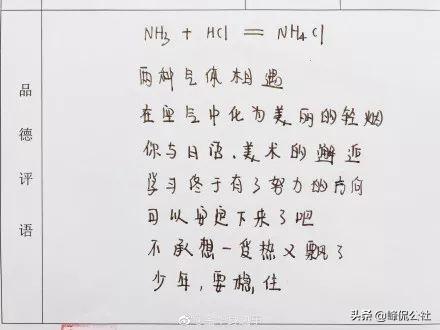 NH3 + HCl = NH4Cl
两种气体相遇
在空气中化为美丽的轻烟
你与日语、美术的邂逅
学习终于有了努力的方向
可以安定下来了吧
不承想一受热又飘了
少年，要稳住
品德评语
头条 @峰侃公社